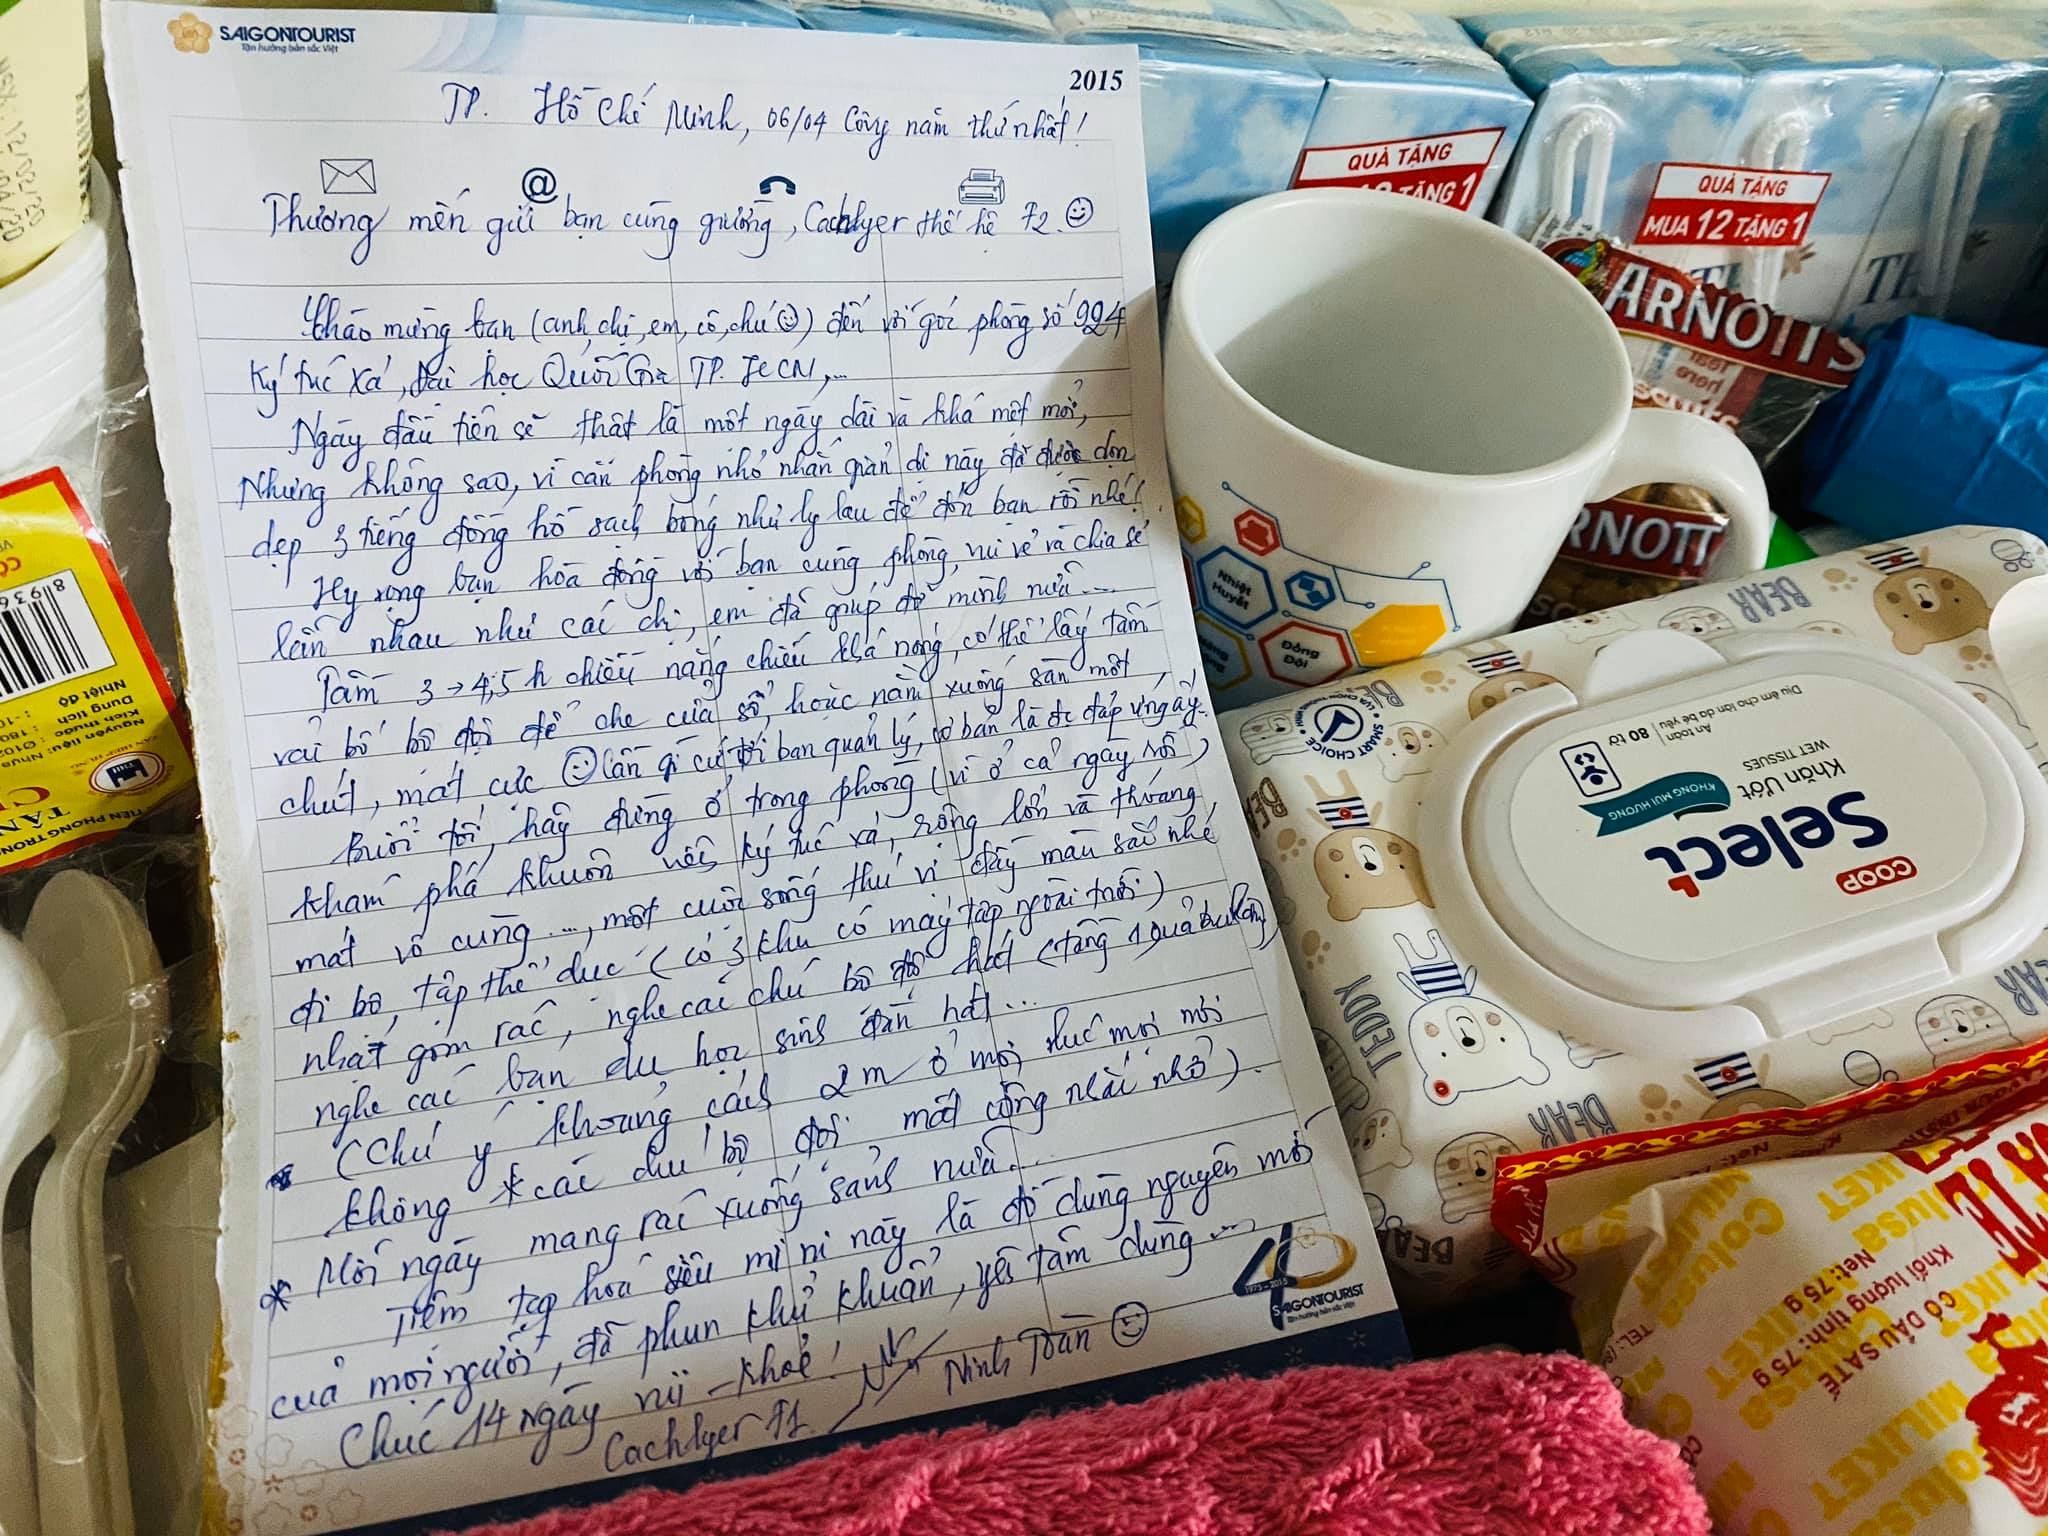 SAIGONTOURIST
Tận hưởng bản sắc Việt
2015
TP. Hồ Chí Minh, 06/04 Công năm thứ nhất!
@
Thương mến gửi bạn cùng giường, Cachlyer thế hệ F2.
Chào mừng bạn (anh, chị, em, cô, chú) đến với góc phòng số 924
Ký túc xá, Đại học Quốc Gia TP. HCM,...
Ngày đầu tiên sẽ thật là một ngày dài và khá mệt mỏi,
Nhưng không sao, vì căn phòng nhỏ nhắn giản dị này đã được dọn
dẹp 3 tiếng đồng hồ sạch bóng như ly lau để đón bạn rồi nhé!
Hy vọng bạn hòa đồng với bạn cùng phòng, vui vẻ và chia sẻ
lẫn nhau như các chị, em đã giúp đỡ mình nữa...
Tầm 3 → 4,5h chiều nắng chiếu khá nóng, có thể lấy tấm
vải bố bộ đội để che cửa sổ, hoặc nằm xuống sàn một
chút, mát cực Cần gì cứ tới ban quản lý, cơ bản là đc đáp ứng ấy.
Buổi tối, hãy đừng ở trong phòng (vì ở cả ngày rồi)
khám phá khuôn viên ký túc xá, rộng lớn và thoáng
mát vô cùng..., một cuộc sống thú vị đầy màu sắc nhé
đi bộ, tập thể dục (có 3 khu có máy tập ngoài trời)
nhặt gom rác, nghe các chú bộ đội hát (tặng 1 quả
nghe các bạn du học sinh đàn hát...
(Chú ý khoảng cách 2m ở mọi lúc mọi nơi
không các chú bộ đội mất công nhắc nhở).
* Mỗi ngày mang rác xuống sảnh nữa...
* Tiệm tạp hoá siêu mi ni này là đồ dùng nguyên mới
của mọi người, đã phun khử khuẩn, yên tâm dùng...
Chúc 14 ngày vui - khoẻ!
Cachlyer F1. Ninh Trần
1975-2015
SAIGONTOURIST
Tận hưởng bản sắc Việt
QUÀ TẶNG
TẶNG 1
QUÀ TẶNG
MUA 12 TẶNG 1
TH
ARNOTT'S
ARNOTT
Nhiệt Huyết
Đồng Đội
BEAR
TEDDY
SMART CHOICE
COOP
Select
Khăn Ướt
WET TISSUES
KHÔNG MÙI HƯƠNG
An toàn
80 tờ
Dịu êm cho làn da bé yêu
Colusa
MILIKET
CÓ DẦU SATÉ
Khối lượng tịnh: 75 g
Net: 75 g
Nguyên liệu: Nhựa
Kích thước
Dung tích
Nhiệt độ
8 936
TIỆN PHONG TRONG
TÂN